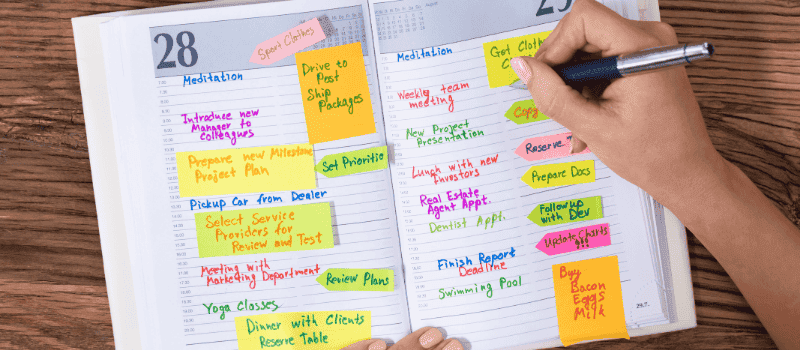 28
Sport Clothes
Meditation
Drive to
Post
Ship
Packages
Introduce new
Manager to
Colleagues
Prepare new Milestone
Project Plan
Set Prioritie
Pickup Car from Dealer
Select Service
Providers for
Review and Test
Meeting with
Marketing Department
Review Plans
Yoga Classes
Dinner with Clients
Reserve Table
August
Meditation
Got Cloth
Weekly team
meeting
Copy
New Project
Presentation
Reserve T
Lunch with new
Investors
Prepare Docs
Real Estate
Agent Appt.
Dentist Appt.
Followup
with Dev
Update Charts
!!!
Finish Report
Deadline
Swimming Pool
Buy
Bacon
Eggs
Milk